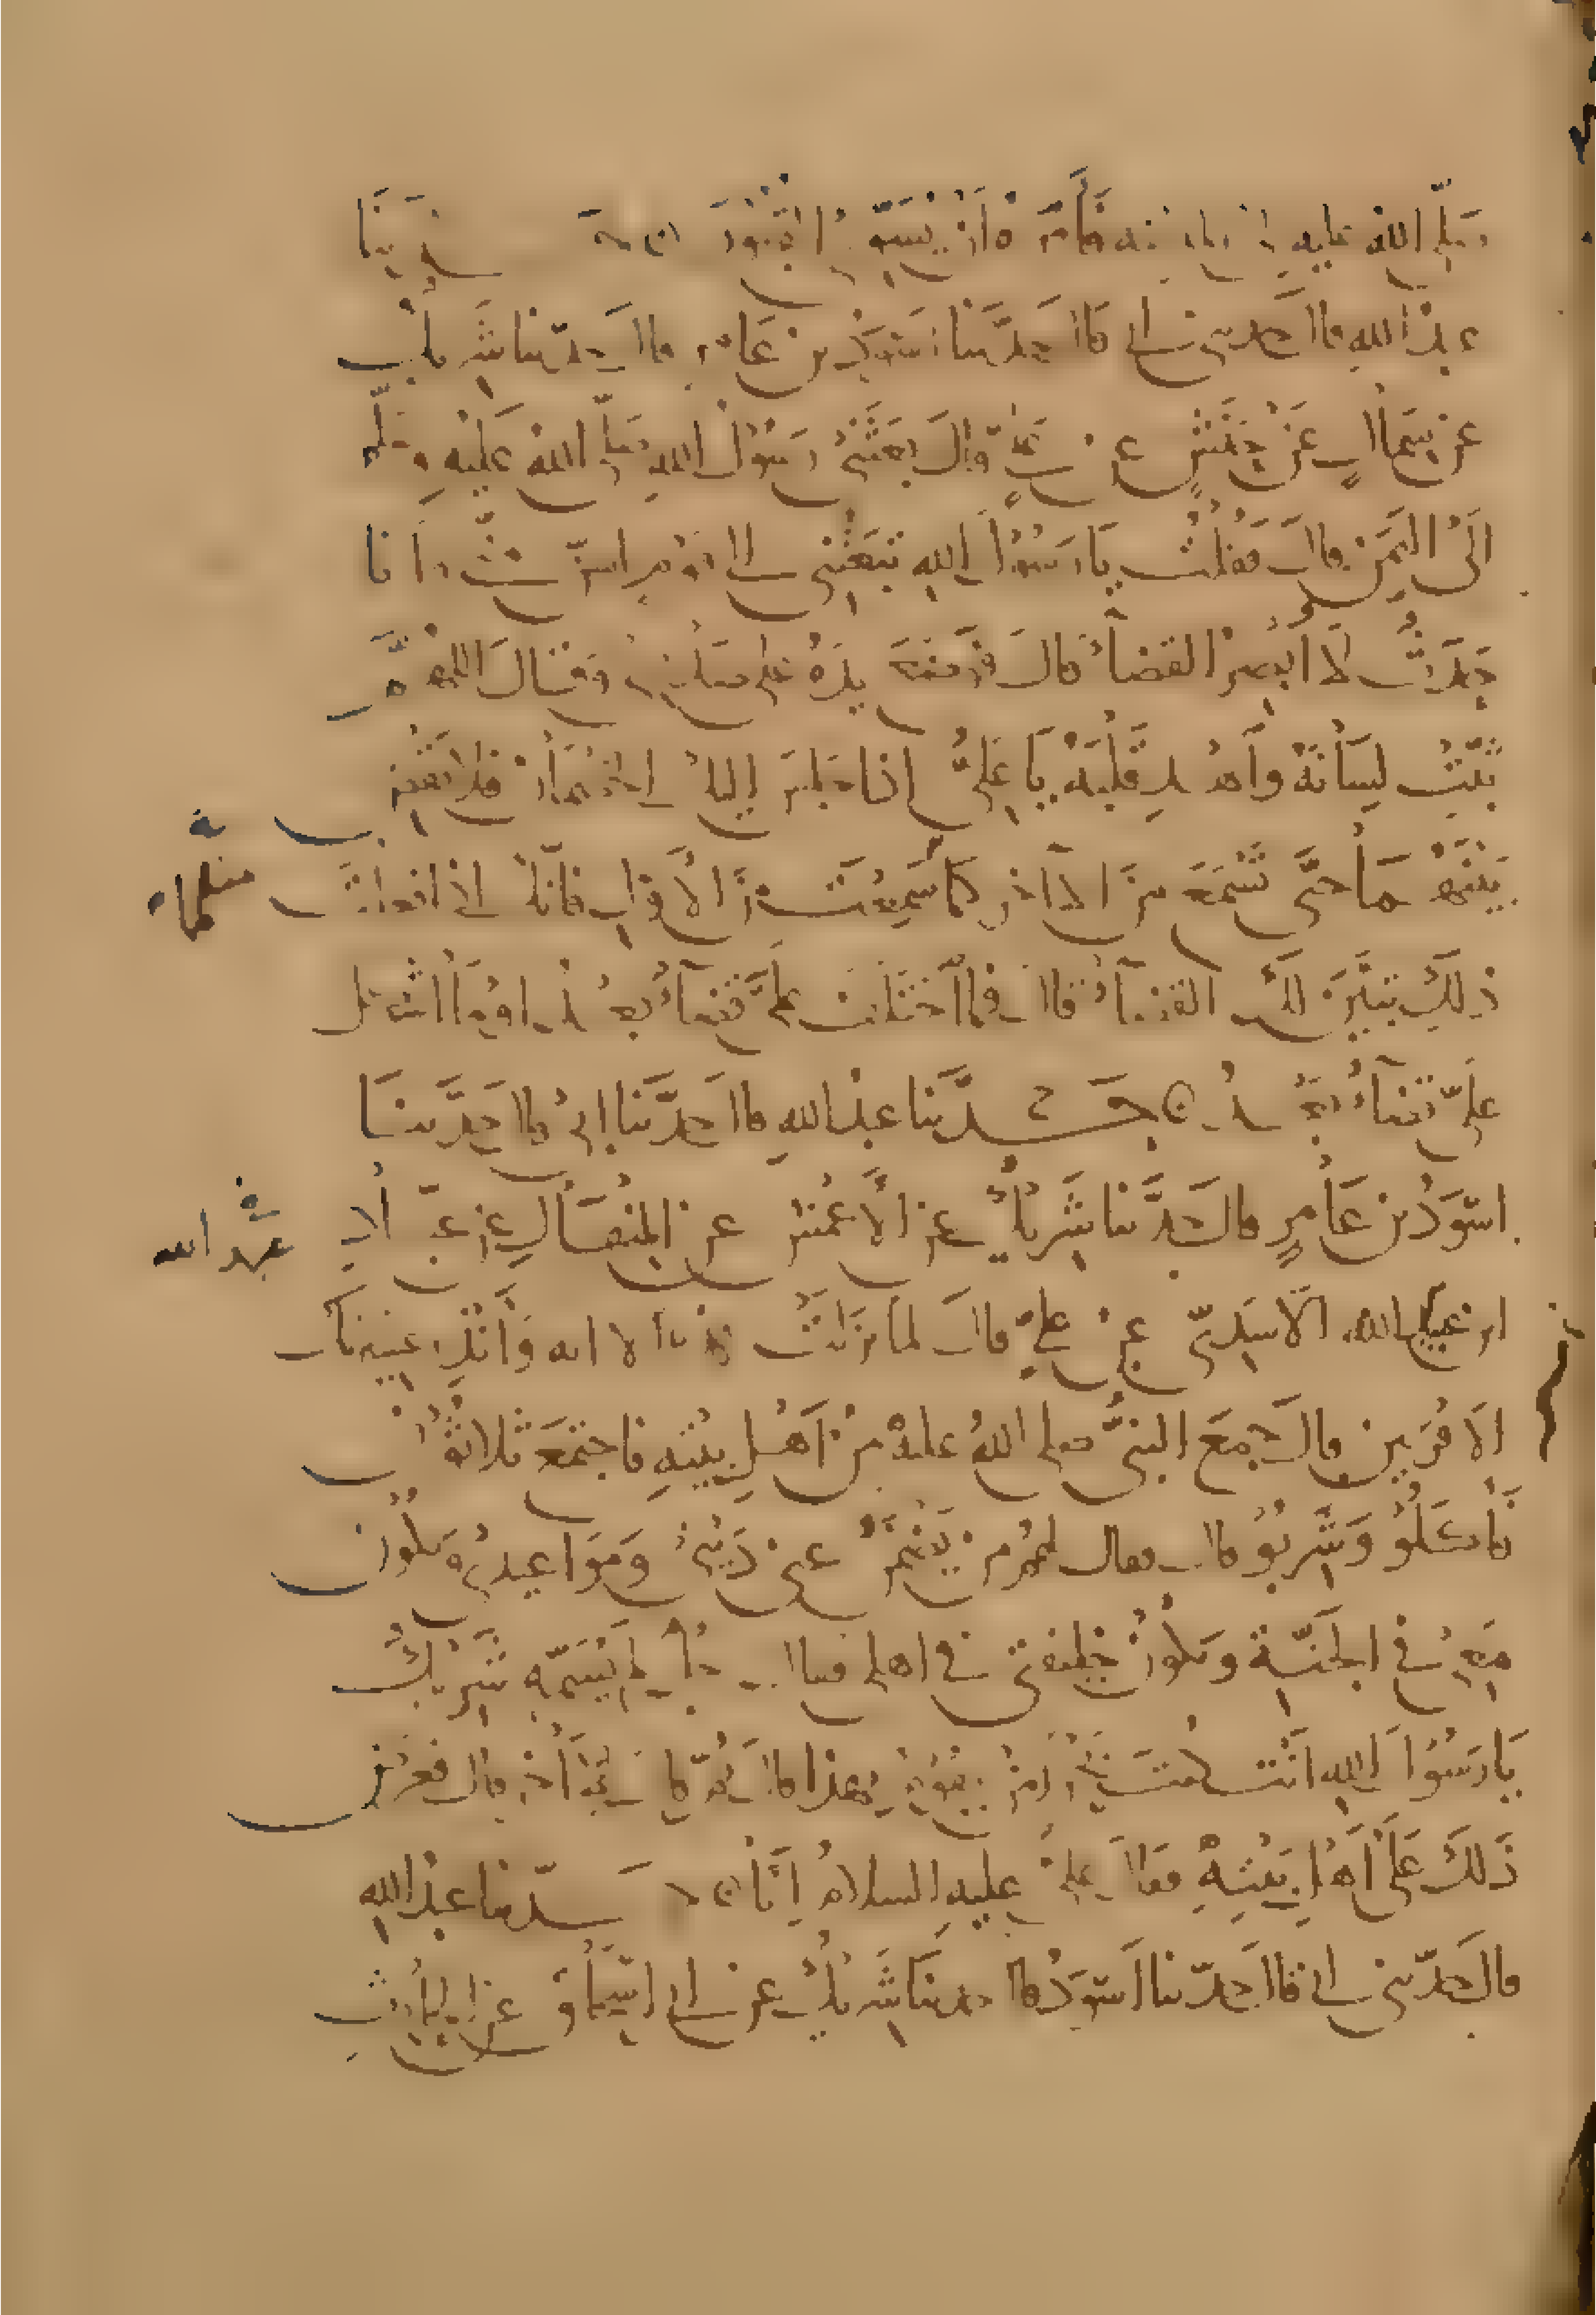 صلى الله عليه فأمره أن يسوى القبور حدثنا
عبد الله قال حدثني أبي قال حدثنا أسود بن عامر قال حدثنا شريك
عن سماك عن حنش عن علي قال بعثني رسول الله صلى الله عليه وسلم
إلى اليمن قال فقلت يا رسول الله تبعثني إلى قوم أسن مني وأنا
حدث لا أبصر القضاء قال فوضع يده على صدري وقال اللهم
ثبت لسانه واهد قلبه يا علي إذا جلس إليك الخصمان فلا تقض
بينهما حتى تسمع من الآخر كما سمعت من الأول فإنك إذا فعلت
ذلك تبين لك القضاء قال فما اختلف علي قضاء بعد أو ما أشكل
علي قضاء بعد حدثنا عبد الله قال حدثنا أبي قال حدثنا
أسود بن عامر قال حدثنا شريك عن الأعمش عن المنهال عن عباد
عبد الله
الأسدي عن علي قال لما نزلت هذه الآية وأنذر عشيرتك
الأقربين قال جمع النبي صلى الله عليه من أهل بيته فاجتمع ثلاثون
فأكلو وشربو قال فقال لهم من يضمن عني ديني ومواعيدي ويكون
معي في الجنة ويكون خليفتي في أهلي فقال رجل لم يسمه شريك
يا رسول الله أنت كنت بحرا من يقوم بهذا قال ثم قال الآخر قال فعرض
ذلك على أهل بيته فقال علي عليه السلام أنا حدثنا عبد الله
قال حدثني أبي قال حدثنا أسود قال حدثنا شريك عن أبي إسحاق عن الحارث